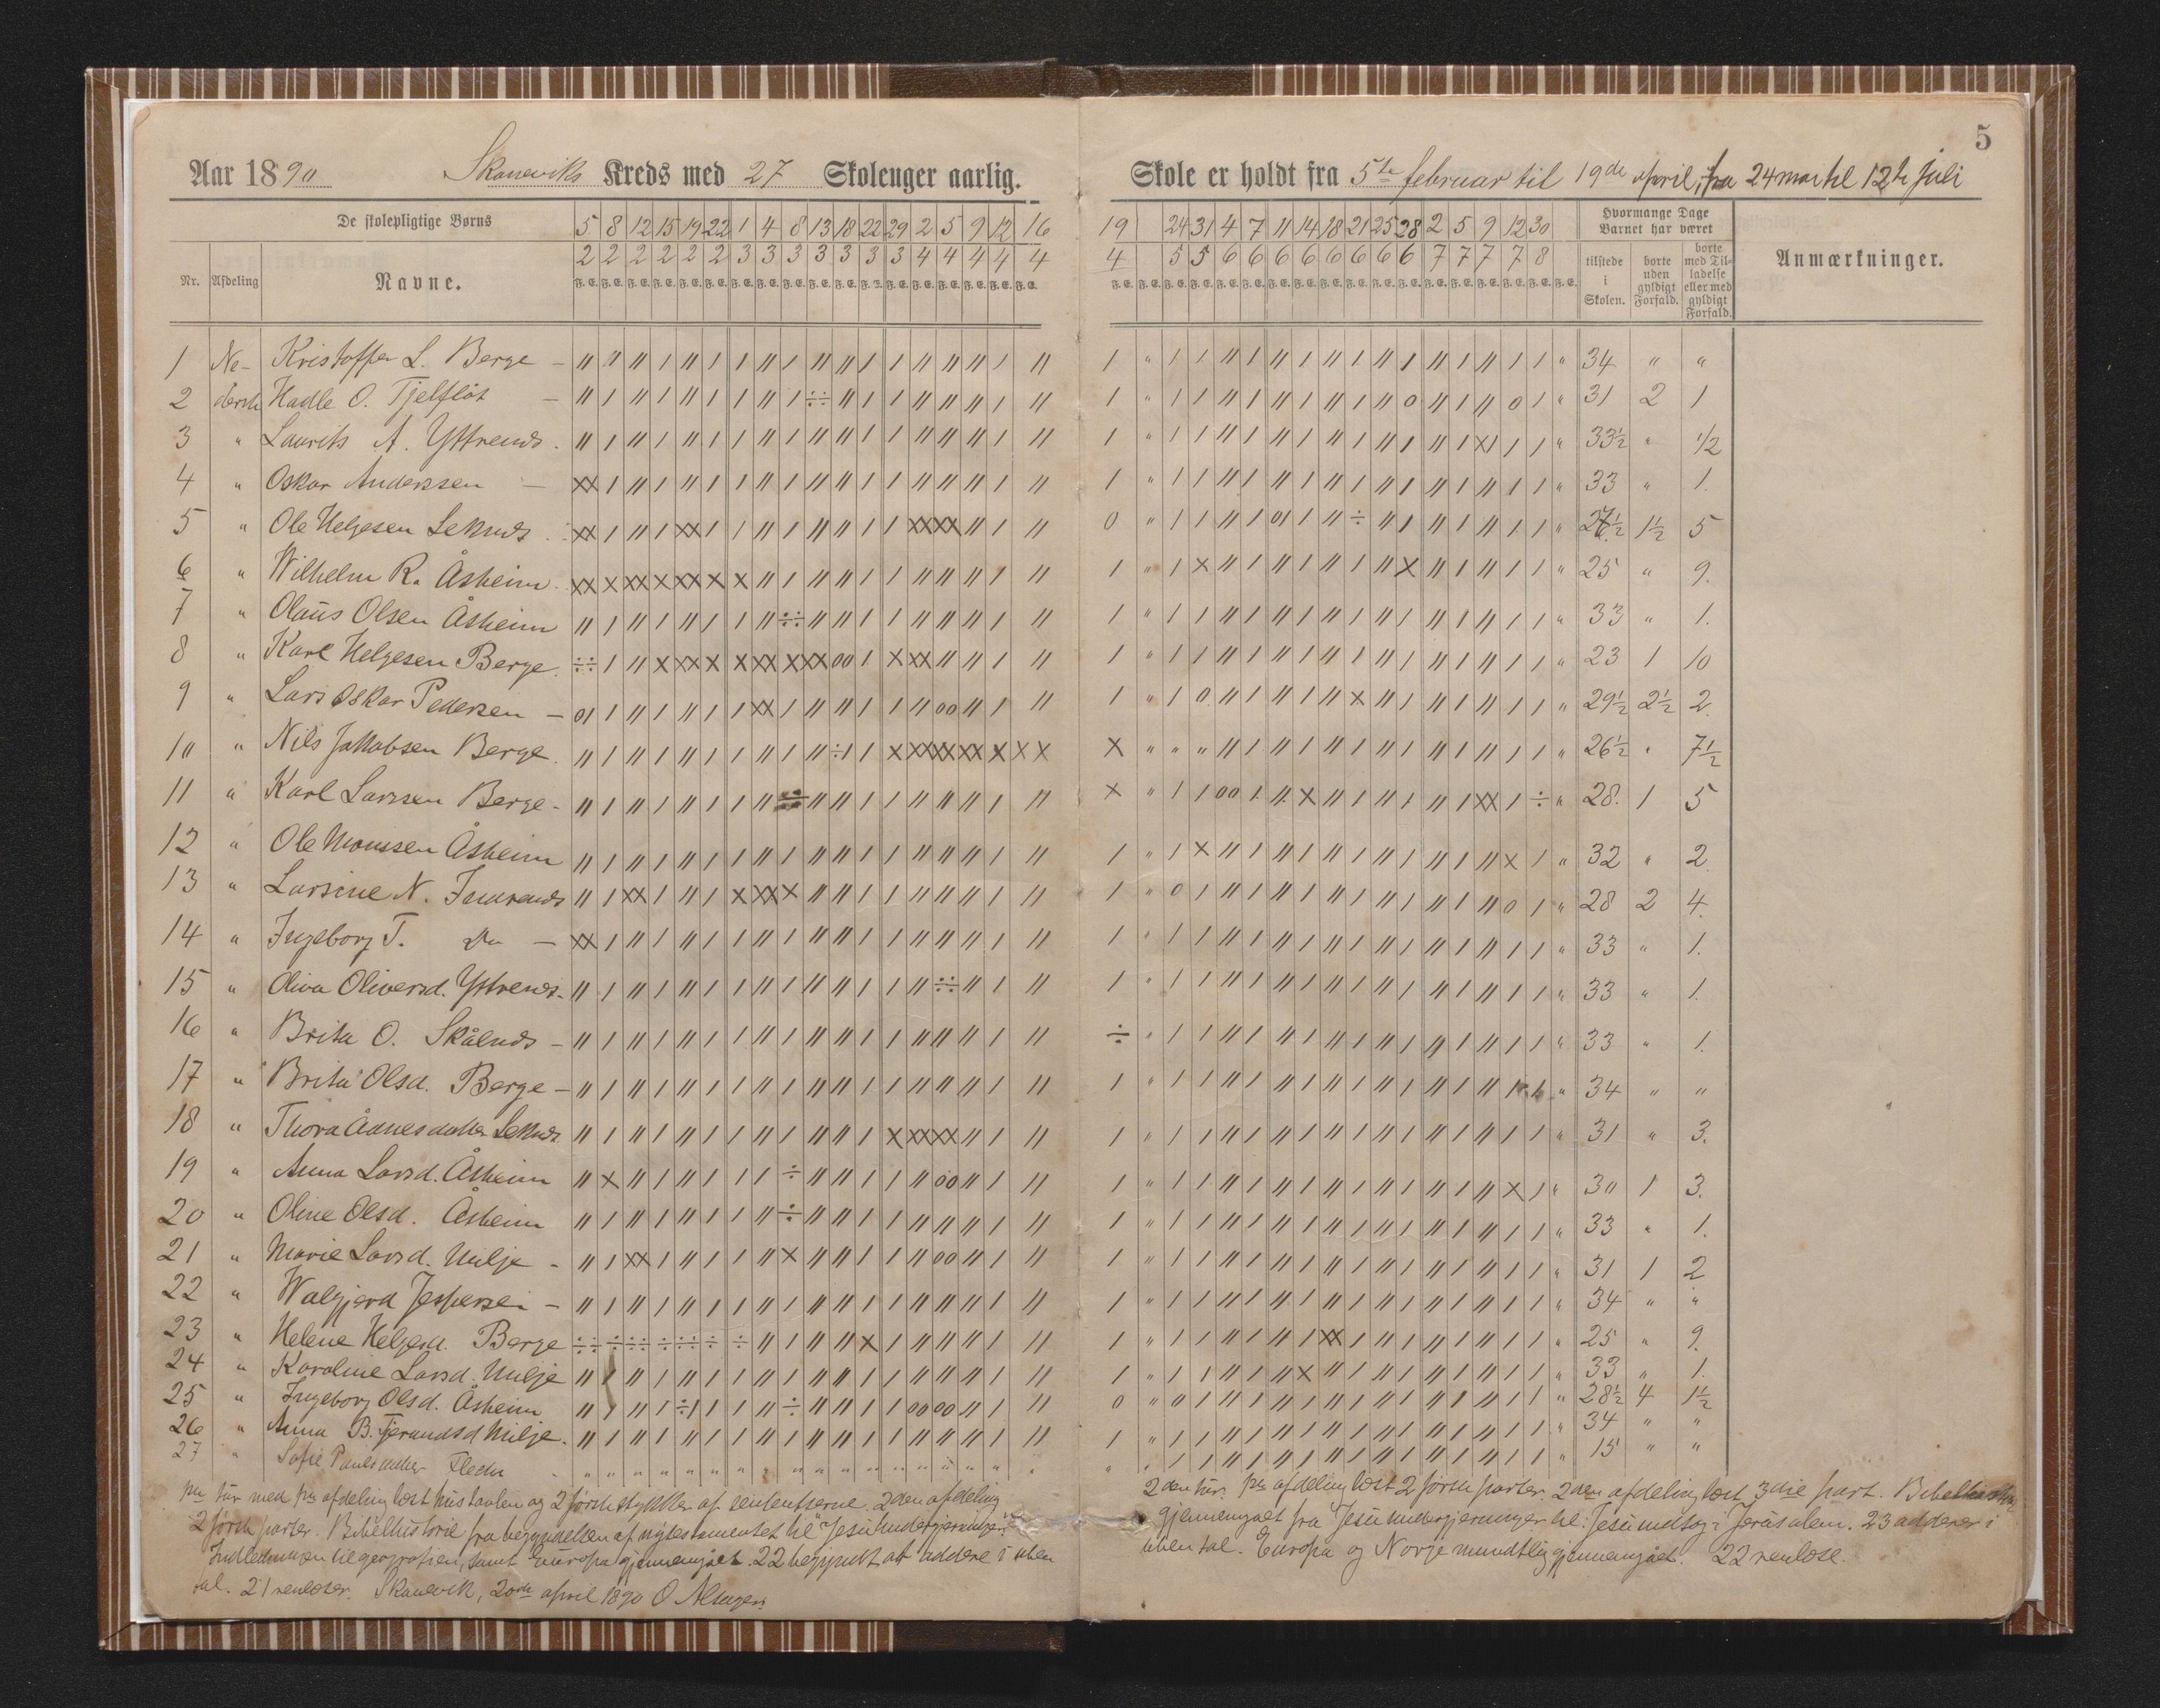 5
Aar 1890 Skaneviks Kreds med 27 Skoleuger aarlig.
Skole er holdt fra 5te februar til 19de april, fra 24 mai til 12te juli
De skolepligtige Børns
Nr. Afdeling Navne.
5 8 12 15 19 22 1 4 8 13 18 22 29 2 5 9 12 16
2 2 2 2 2 2 3 3 3 3 3 3 3 4 4 4 4 4
F. E. F. E. F. E. F. E. F. E. F. E. F. E. F. E. F. E. F. E. F. E. F. E. F. E. F. E. F. E. F. E. F. E. F. E.
19 24 31 4 7 11 14 18 21 25 28 2 5 9 12 30
4 5 5 6 6 6 6 6 6 6 6 7 7 7 7 8
Hvormange Dage Barnet har været
tilstede i Skolen.
borte uden gyldigt Forfald.
borte med Tilladelse eller med gyldigt Forfald.
Anmærkninger.
1 Ne- Kristoffer L. Berge 34 " "
2 derste Hadle O. Tjelflöt 31 2 1
3 " Laurits A. Yttrends 33½ " ½
4 " Oskar Anderssen 33 " 1.
5 " Ole Helgesen Leknds 1½ 5
6 " Wilhelm R. Åsheim 25 " 9.
7 " Olaus Olsen Åsheim 33 " 1.
8 " Karl Helgesen Berge 23 1 10
9 " Lars Oskar Pedersen 29½ 2½ 2.
10 " Nils Jakobsen Berge 26½ " 7½
11 " Karl Larssen Berge 28. 1 5
12 " Ole Monssen Åsheim 32 " 2
13 " Larsine N. Indrends 28 2 4.
14 " Ingeborg T. Do 33 " 1.
15 " Oliva Oliversd. Yttrends 33 " 1.
16 " Brita O. Skålnds 33 " 1.
17 " Brita Olsd. Berge 34 " "
18 " Thora Ådnesdatter Leknds 31 " 3.
19 " Anna Larsd. Åsheim 30 1 3.
20 " Oline Olsd. Åsheim 33 " 1.
21 " Marie Larsd. Milje 31 1 2
22 " Walgjerd Jespersen 34 " "
23 " Helene Helgesd. Berge 25 " 9.
24 " Karoline Larsd. Milje 33 " 1.
25 " Ingeborg Olsd. Åsheim 28½ 4 1½
26 " Anna B. Tjerandsd Milje 34 " "
27 " Sofie Paulsdatter 15 " "
1ste tur med 1ste afdeling læst hustavlen og 2 første stykker af sententserne. 2den afdeling
2 første parter. Bibelhistorie fra begyndelsen af nytestamentet til "Jesu undergjerninger."
Indledningen til geografien, samt Europa gjennemgået. 22 begyndt at addere i uben
tal. 21 renloser. Skanevik, 20de april 1890 O
2den tur. 1ste afdeling læst 2 første parter. 2den afdeling læst 3die part. Bibelhistorie
gjennemgået fra Jesu undergjerninger til: Jesu indtog i Jerusalem. 23 adderer i
uben tal. Europa og Norge mundtlig gjennemgået. 22 renlose.